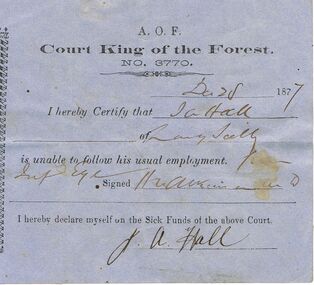 A. O. F.
Court King of the Forest.
NO. 3770.
Dec 28 1877
I hereby Certify that J A Hall
of
is unable to follow his usual employment.
Signed
I hereby declare myself on the Sick Funds of the above Court.
J. A. Hall